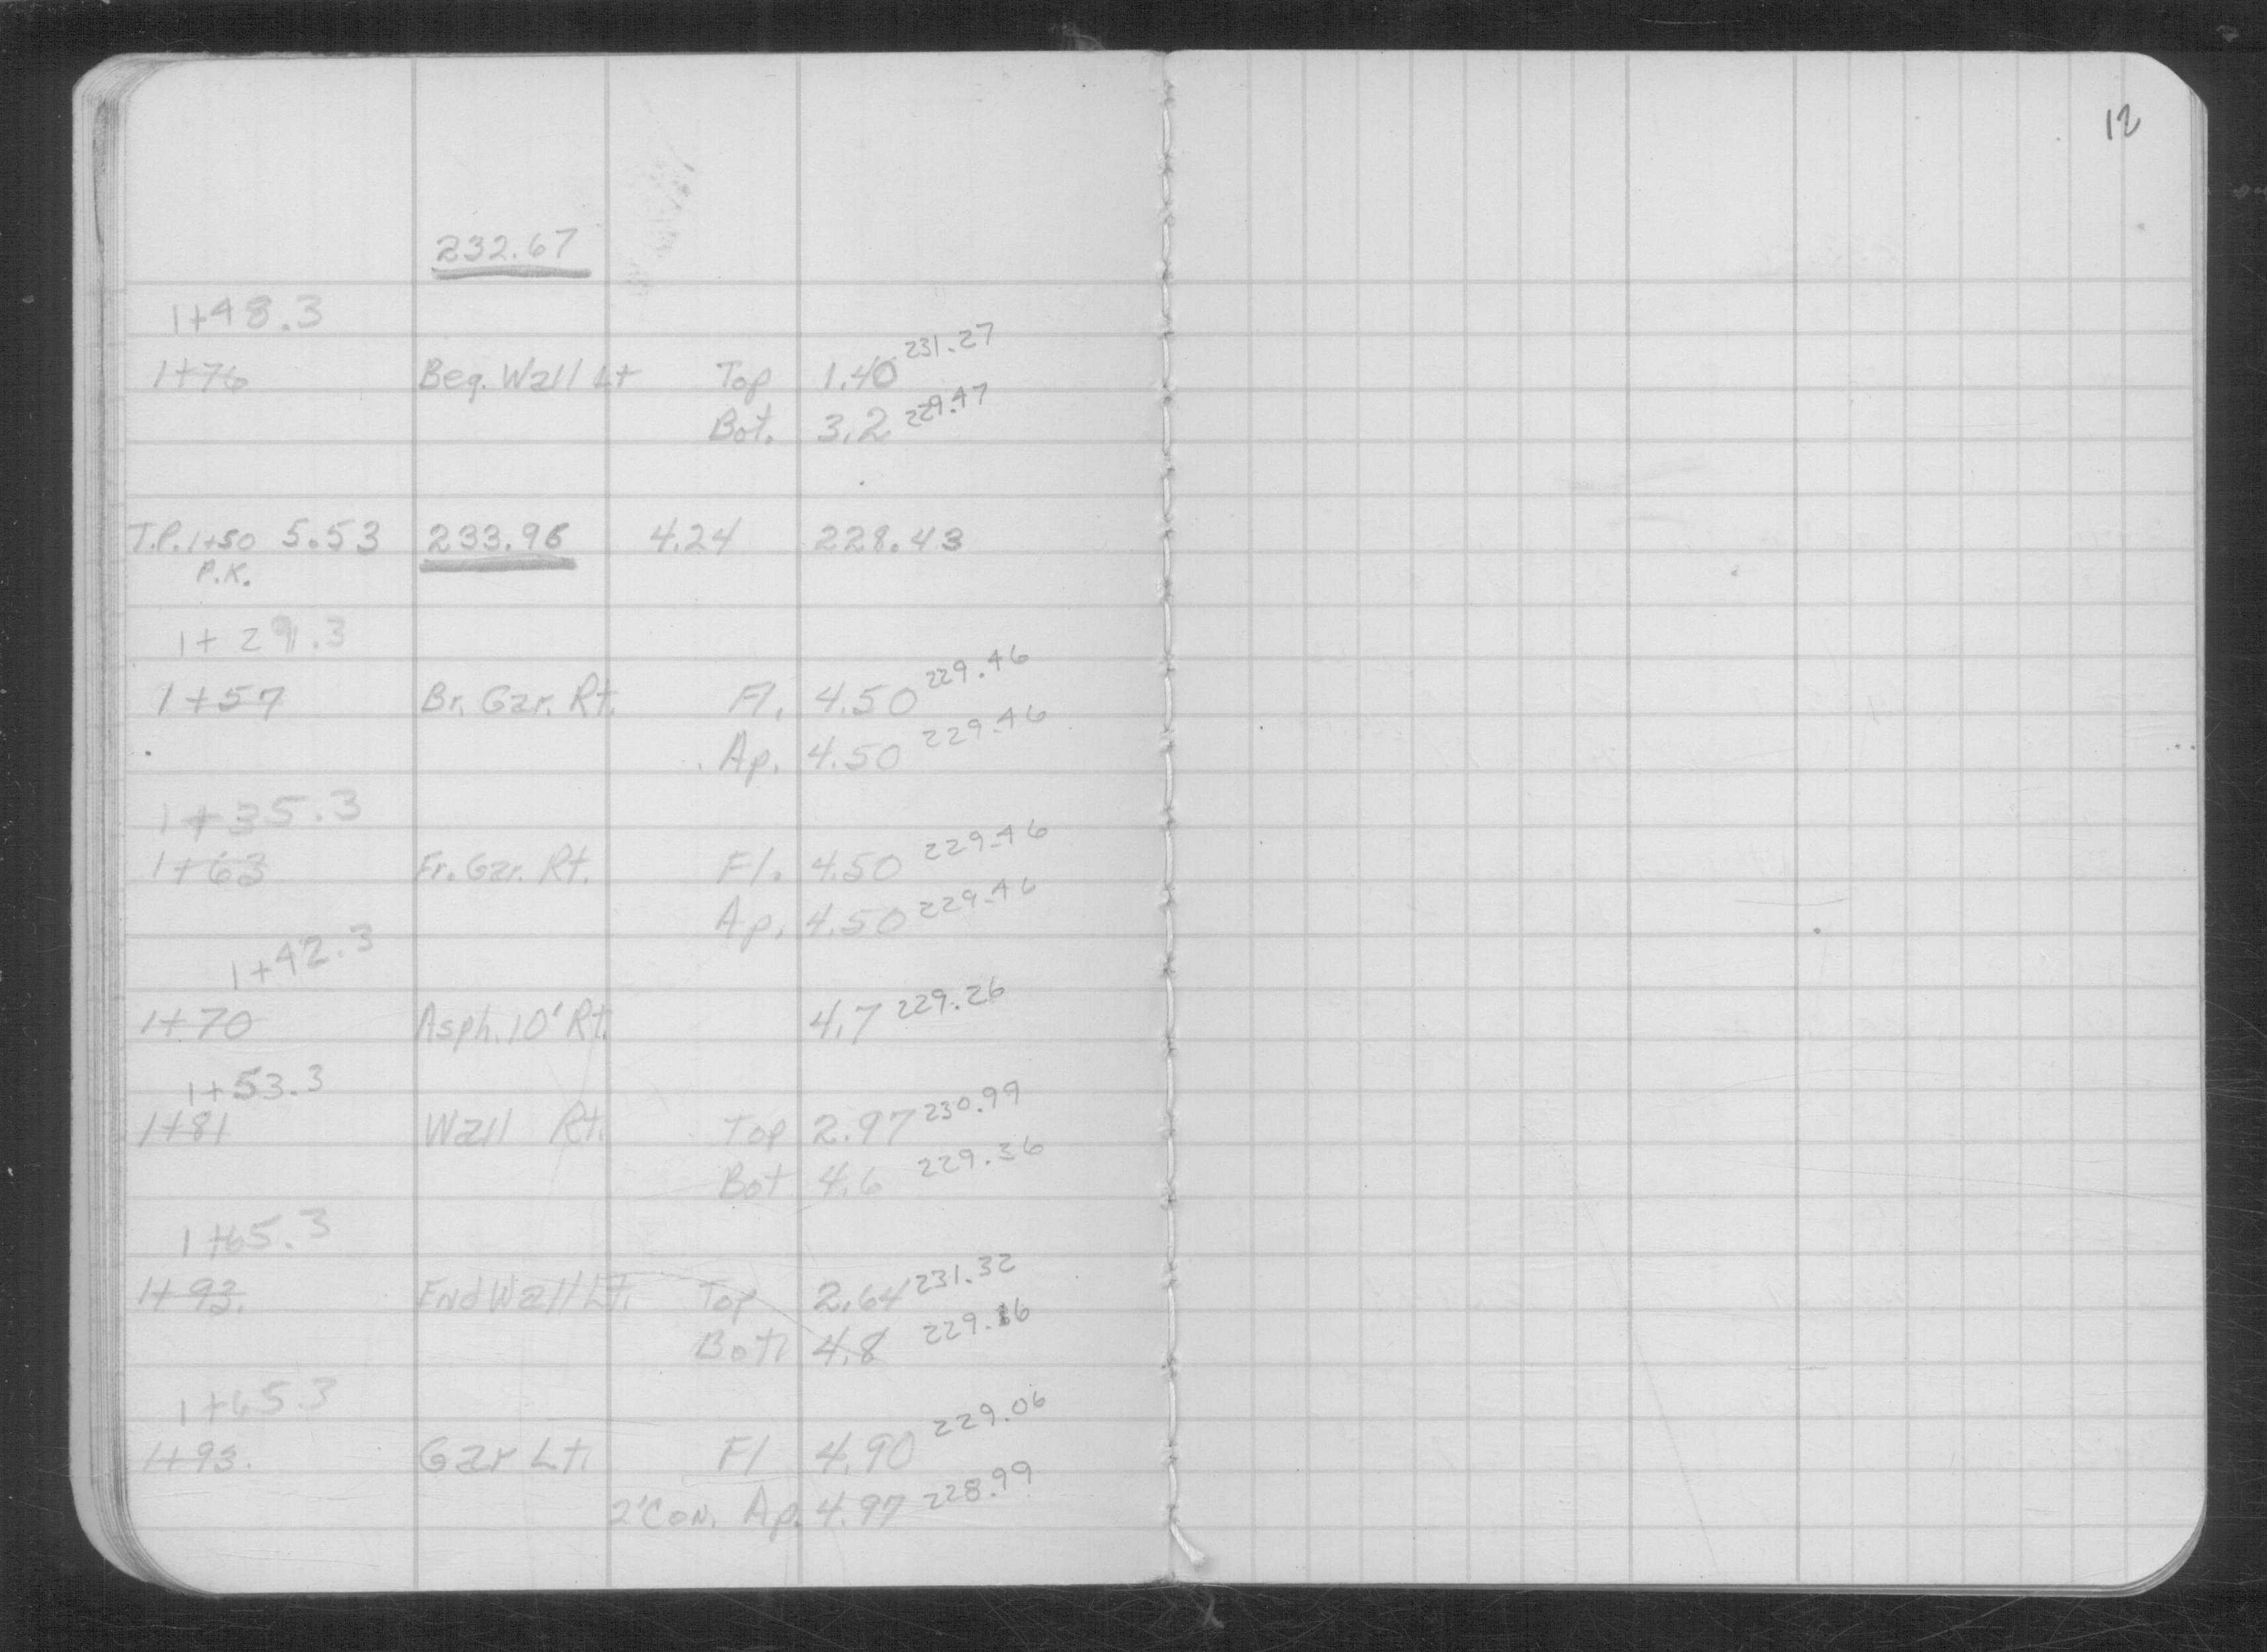 12
232.67
1+48.3
1+76 Beg. Wall Lt Top 1.40 231.27
Bot. 3.2 229.47
T.P. 1+50 5.53 233.96 4.24 228.43
P.K.
1+29.3
1+57 Br. Gar. Rt. Fl. 4.50 229.46
Ap. 4.50 229.46
1+35.3
1+63 Fr. Gar. Rt. Fl. 4.50 229.46
Ap. 4.50 229.46
1+42.3
1+70 Asph. 10' Rt. 4.7 229.26
1+53.3
1+81 Wall Rt. Top 2.97 230.99
Bot 4.6 229.36
1+65.3
1+93. End Wall Lt. Top 2.64 231.32
Bott 4.8 229.16
1+65.3
1+93. Gar Lt. Fl 4.90 229.06
2' Con. Ap. 4.97 228.99